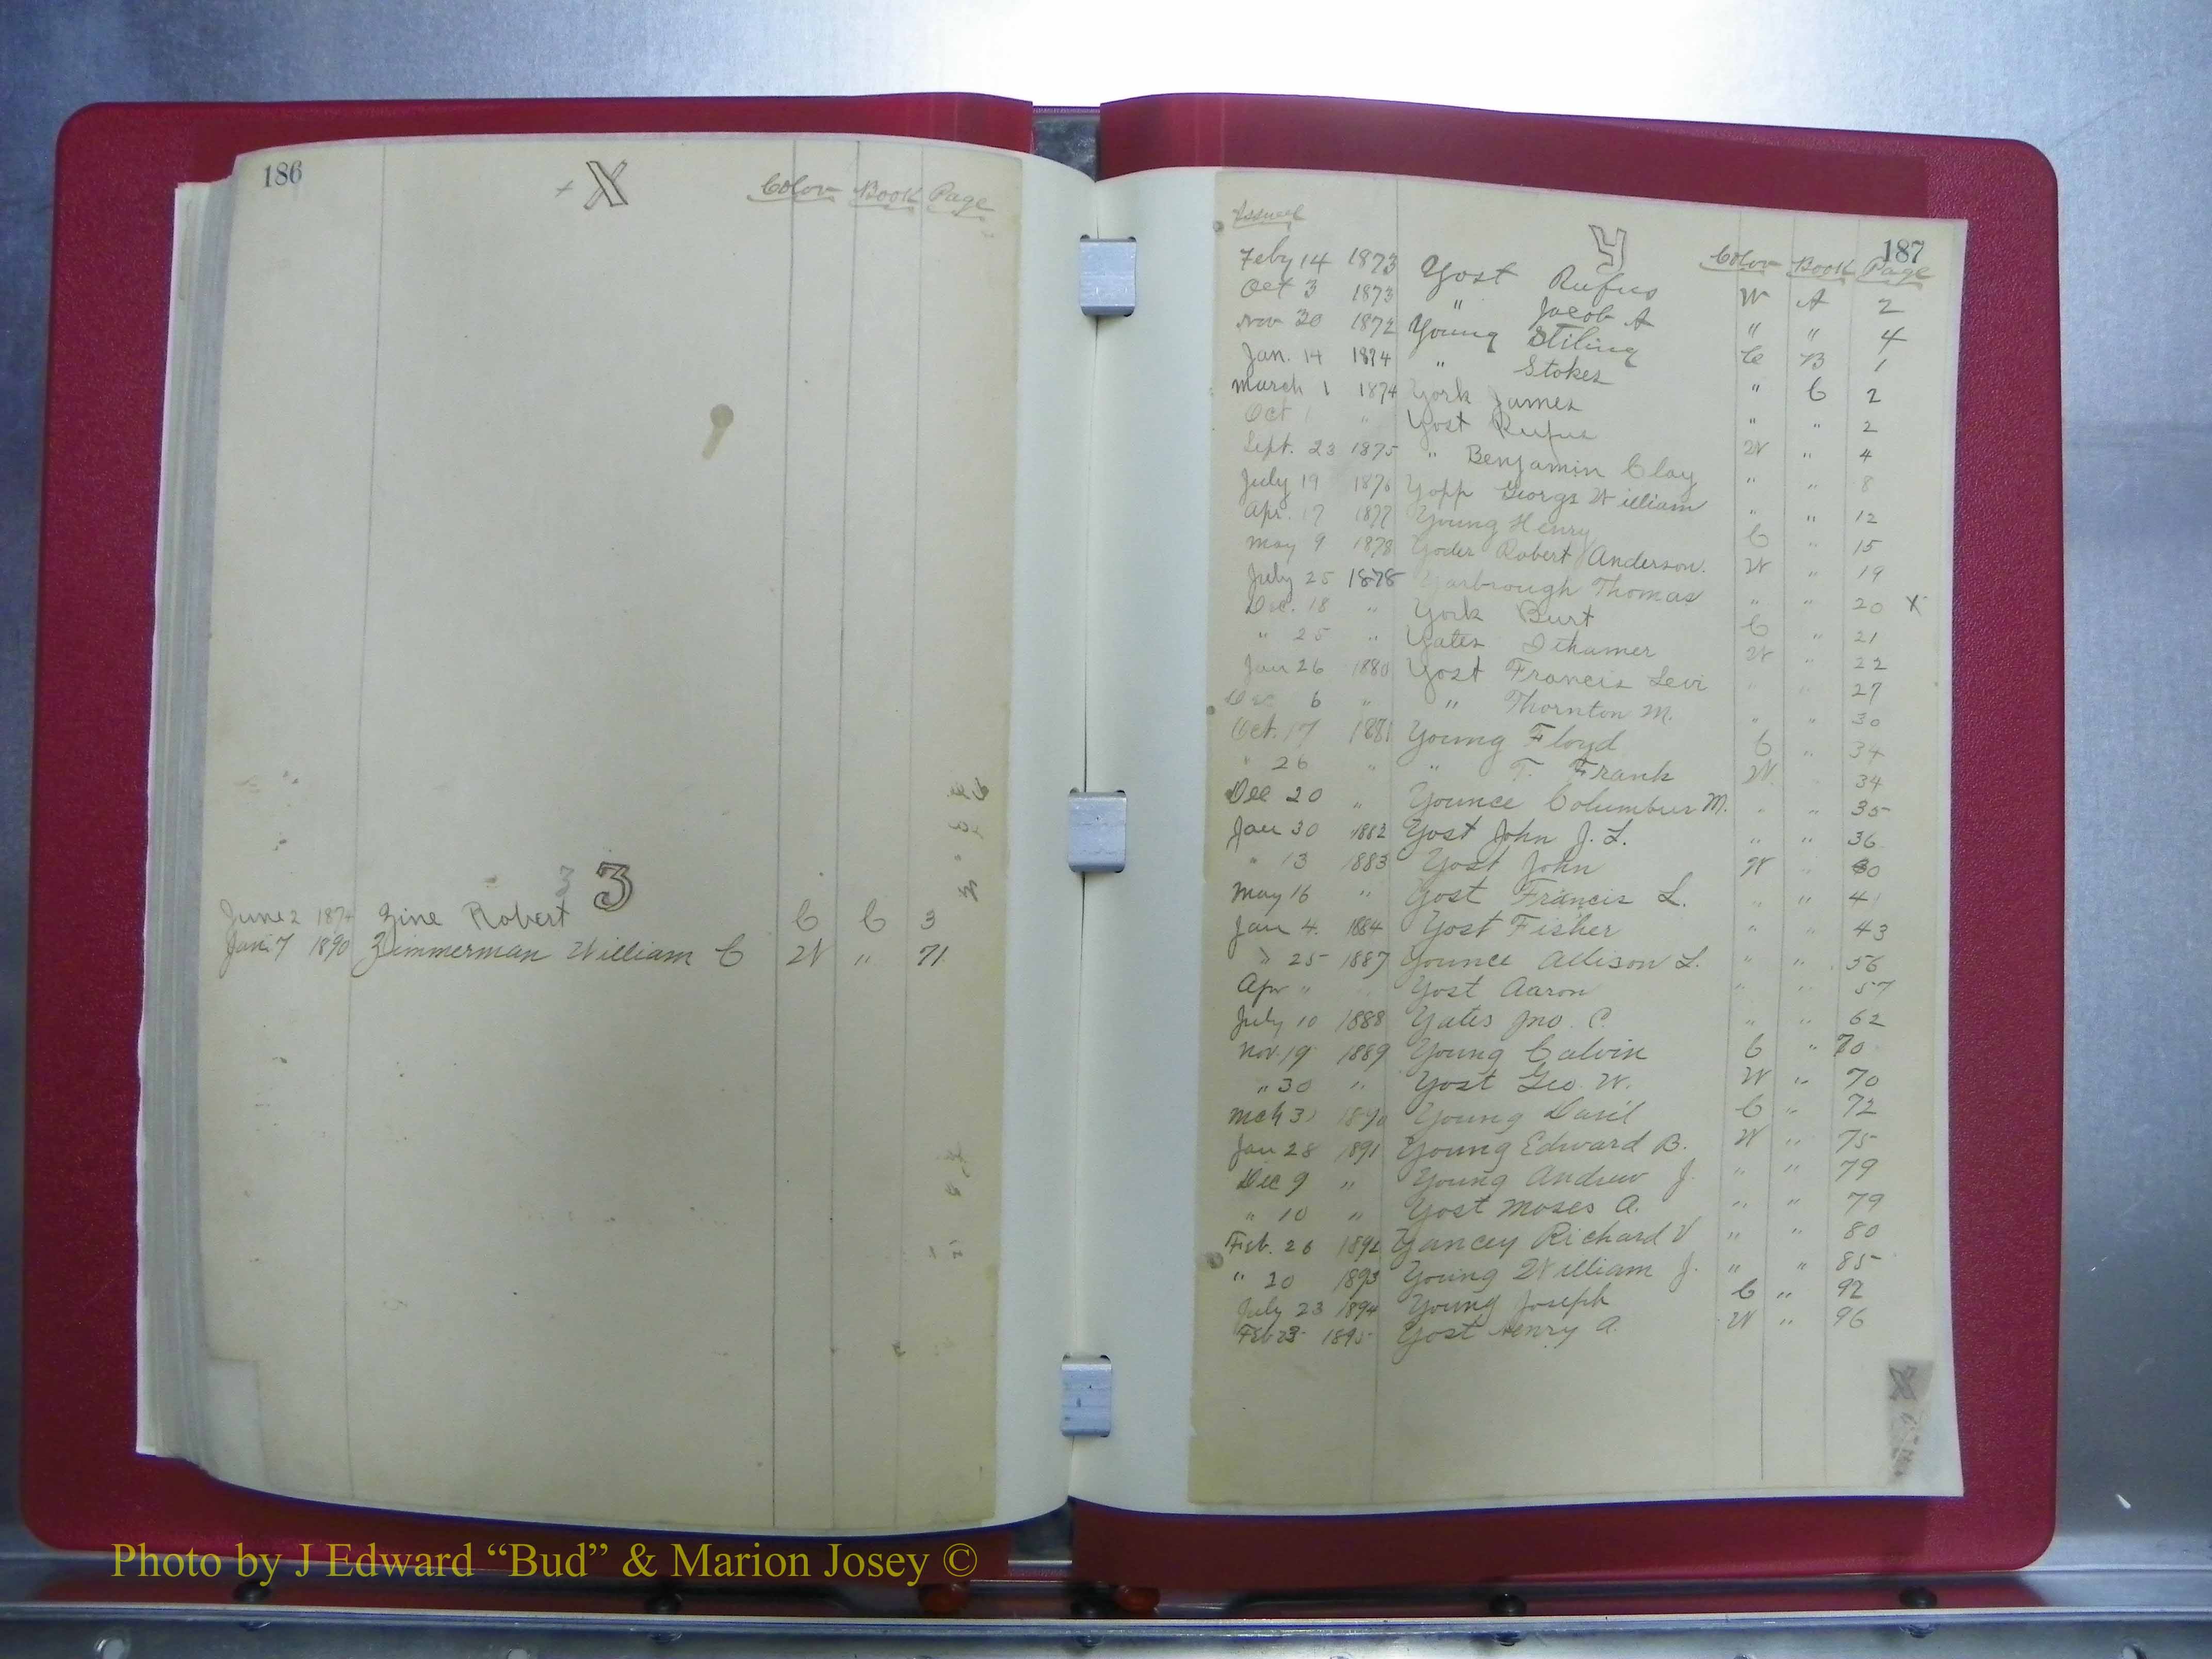 186
+ X Color Book Page
3
June 2 1874 Zine Robert C C 3
Jan. 7 1890 Zimmerman William C W " 71
Issued
Y 187
Color Book Page
Feby 14 1873 Yost Rufus W A 2
Oct 3 1873 " Jacob A " " 4
Nov 30 1872 Young Stiling C B 1
Jan. 14 1874 " Stokes " C 2
March 1 1874 York James " " 2
Oct 1 " Yost Rufus W " 4
Sept. 23 1875 " Benjamin Clay " " 8
July 19 1876 Yopp George William " " 12
Apr. 17 1877 Young Henry C " 15
May 9 1878 Yoder Robert Anderson. W " 19
July 25 1878 Yarbrough Thomas " " 20 X
Dec. 18 " York Burt C " 21
" 25 " Yates Ithamer W " 22
Jan 26 1880 Yost Francis Levi " " 27
Dec 6 " " Thornton M. " " 30
Oct. 17 1881 Young Floyd C " 34
" 26 " " T. Frank W " 34
Dec 20 " Younce Columbus M. " " 35
Jan 30 1882 Yost John J. L. " " 36
" 13 1883 Yost John W "
May 16 " Yost Francis L. " " 41
Jan 4. 1884 Yost Fisher " " 43
" 25 1887 Younce Allison L. " " 56
Apr " Yost Aaron " " 57
July 10 1888 Yates Jno. C. " " 62
Nov. 19 1889 Young Calvin C " 70
" 30 " Yost Geo. W. W " 70
Mch 31 1890 Young David C " 72
Jan 28 1891 Young Edward B. W " 75
Dec 9 " Young Andrew J. " " 79
" 10 " Yost Moses A. " " 79
Feb. 26 1892 Yancey Richard V " " 80
" 20 1893 Young William J. " " 85
July 23 1894 Young Joseph C " 92
Feb 1895 Yost Henry A. W " 96
Photo by J Edward “Bud” & Marion Josey ©